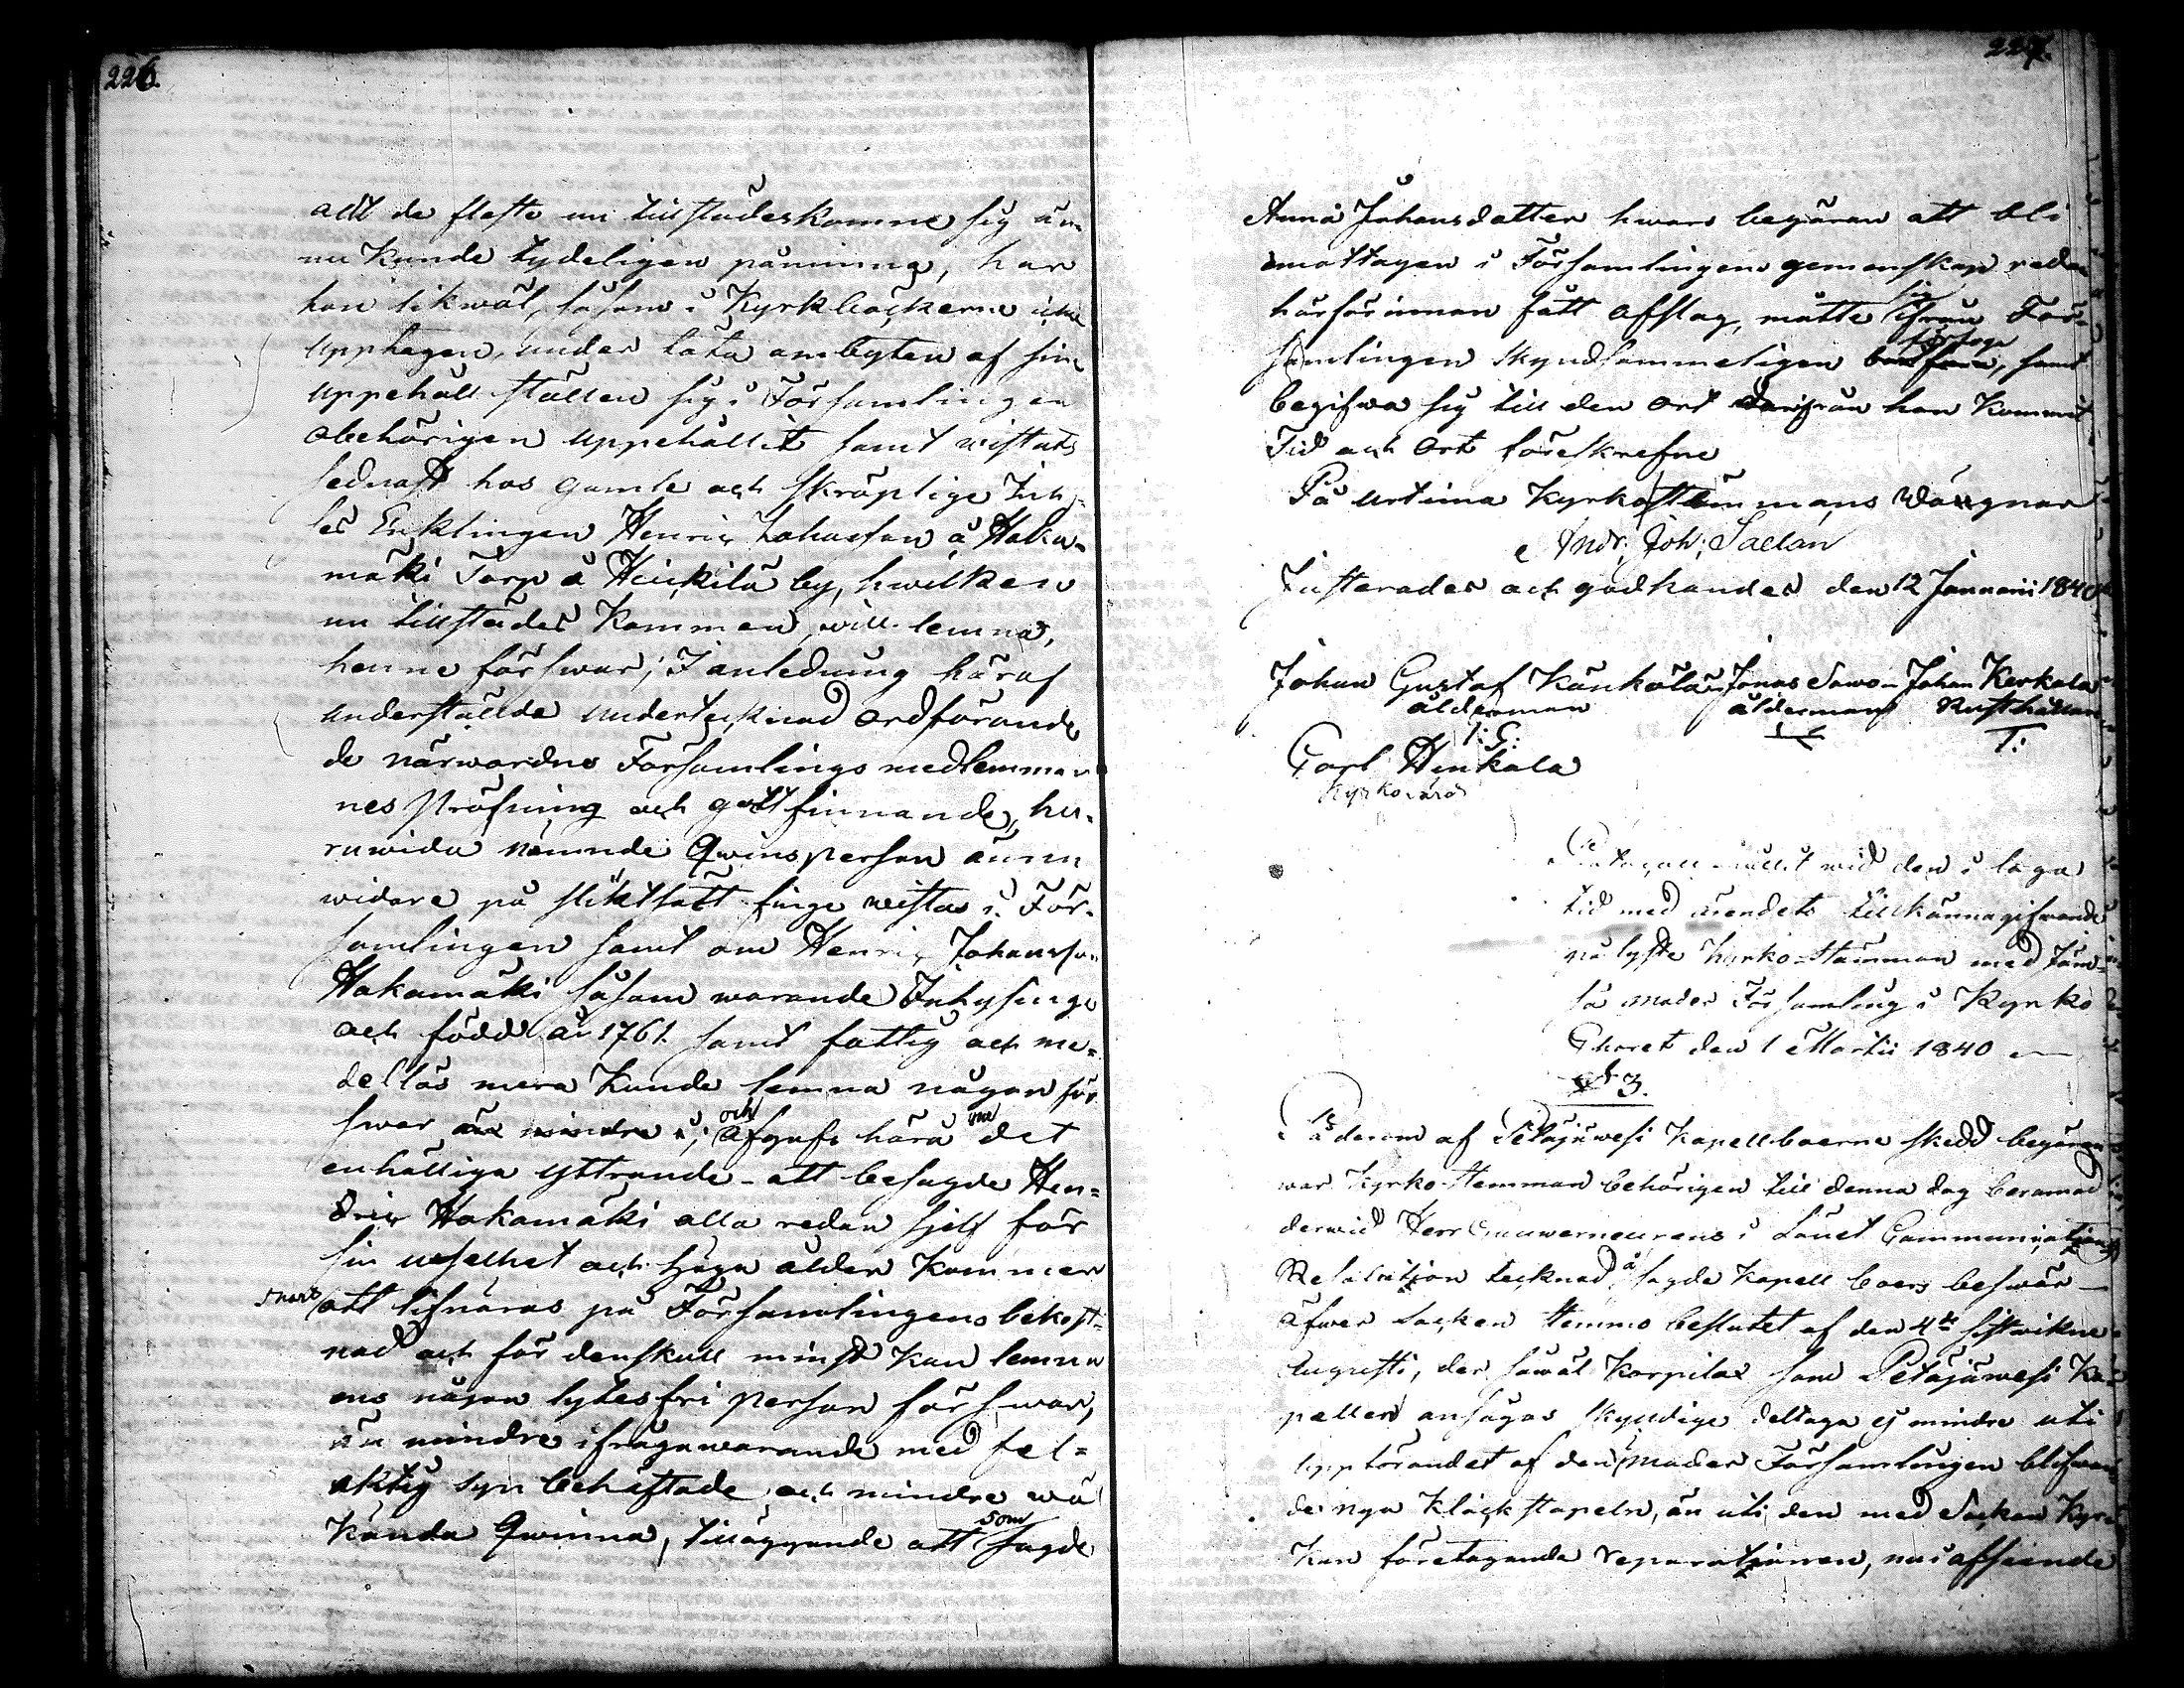 226.
att de fleste nu tillstädeskomne sig än-
nu kunde tydeligen påminna, har
hon likwäl, såsom i Kyrkböckerne icke
upptagen, under täta ombyten af sine
uppehållställen sig i Församlingen
obehörigen uppehållit samt wistats
sednast hos gamle och skröplige Inh.
les Enklingen Henric Johansson å Haka-
mäki Torp å Heikkilä by, hwilken
nu tillstädes kommen, will lemna,
henne förswar; I anledning häraf
underställde undertecknad ordförande
de närwardne Församlings medlemmar-
nes pröfning och godtfinnande, hu-
ruwida nämnde Qwinsperson ännu
widare på slikt sätt finge wistas i För-
samlingen samt om Henric Johansson
Hakamäki såsom warande Inhysinge
och född år 1761. samt fattig och me-
dellös mera kunde lemna någon för-
swar än mindre ; och afgafs häröfver det
enhälliga yttrande - att besagde Hen-
dric Hakamäki alla redan sjelf för
sin uselhet och höga ålder kommer
snart att lifnäras på Församlingens bekost-
nad och för denskull minst kan lemna
ens någon lytesfri person förswar,
än mindre ifrågawarande med fel-
aktig syn behäftade och mindre wäl
kända Qwinna, tilläggande att som sagde
227.
Anna Johansdotter hwars begäran att bli
emottagen i Församlingens gemenskap redan
härförinnan fått afslag, måtte sig ifrån För-
samlingen skyndsammeligen förfoga, samt
begifwa sig till den ort hwarifrån hon kommit
Tid och ort föreskrefne
På Urtima Kyrkostämmans wägnar
Andr; Joh; Saelan
Justerades och godkändes den 12 Januarii 1840
Johan Gustaf Känkölä Jonas Sawo- Johan Kerkola
ålderman ålderman Rusthållare
I: G: T:
Carl Henkala
Kyrkovärd
Protocoll hållit wid den i laga
tid med ärendets tillkännagifwande
pålyste Kyrko-Stämman med Jäm-
sä Moder Församling i Kyrko
Choret den 1 Martii 1840
§ 3.
På derom af Petäjäwesi Kapellboerne skedd begäran
war Kyrko-Stemman behörigen till denna dag beramad
derwid Herr Gouverneurens i Länet Communications
Resolution tecknad å sagde Kapell boers beswär -
öfwer Socken Stemmo beslutet af den 4de sistwikne
Augusti, der såwäl Korpilax som Petäjäwesi Ka-
peller ansågos skyldige deltaga ej mindre uti
uppförandet af den moder Församlingen blifwan-
de nya Klockstapeln, än uti den med Socken Kyr-
kan företagande reparationen, nu i afseende